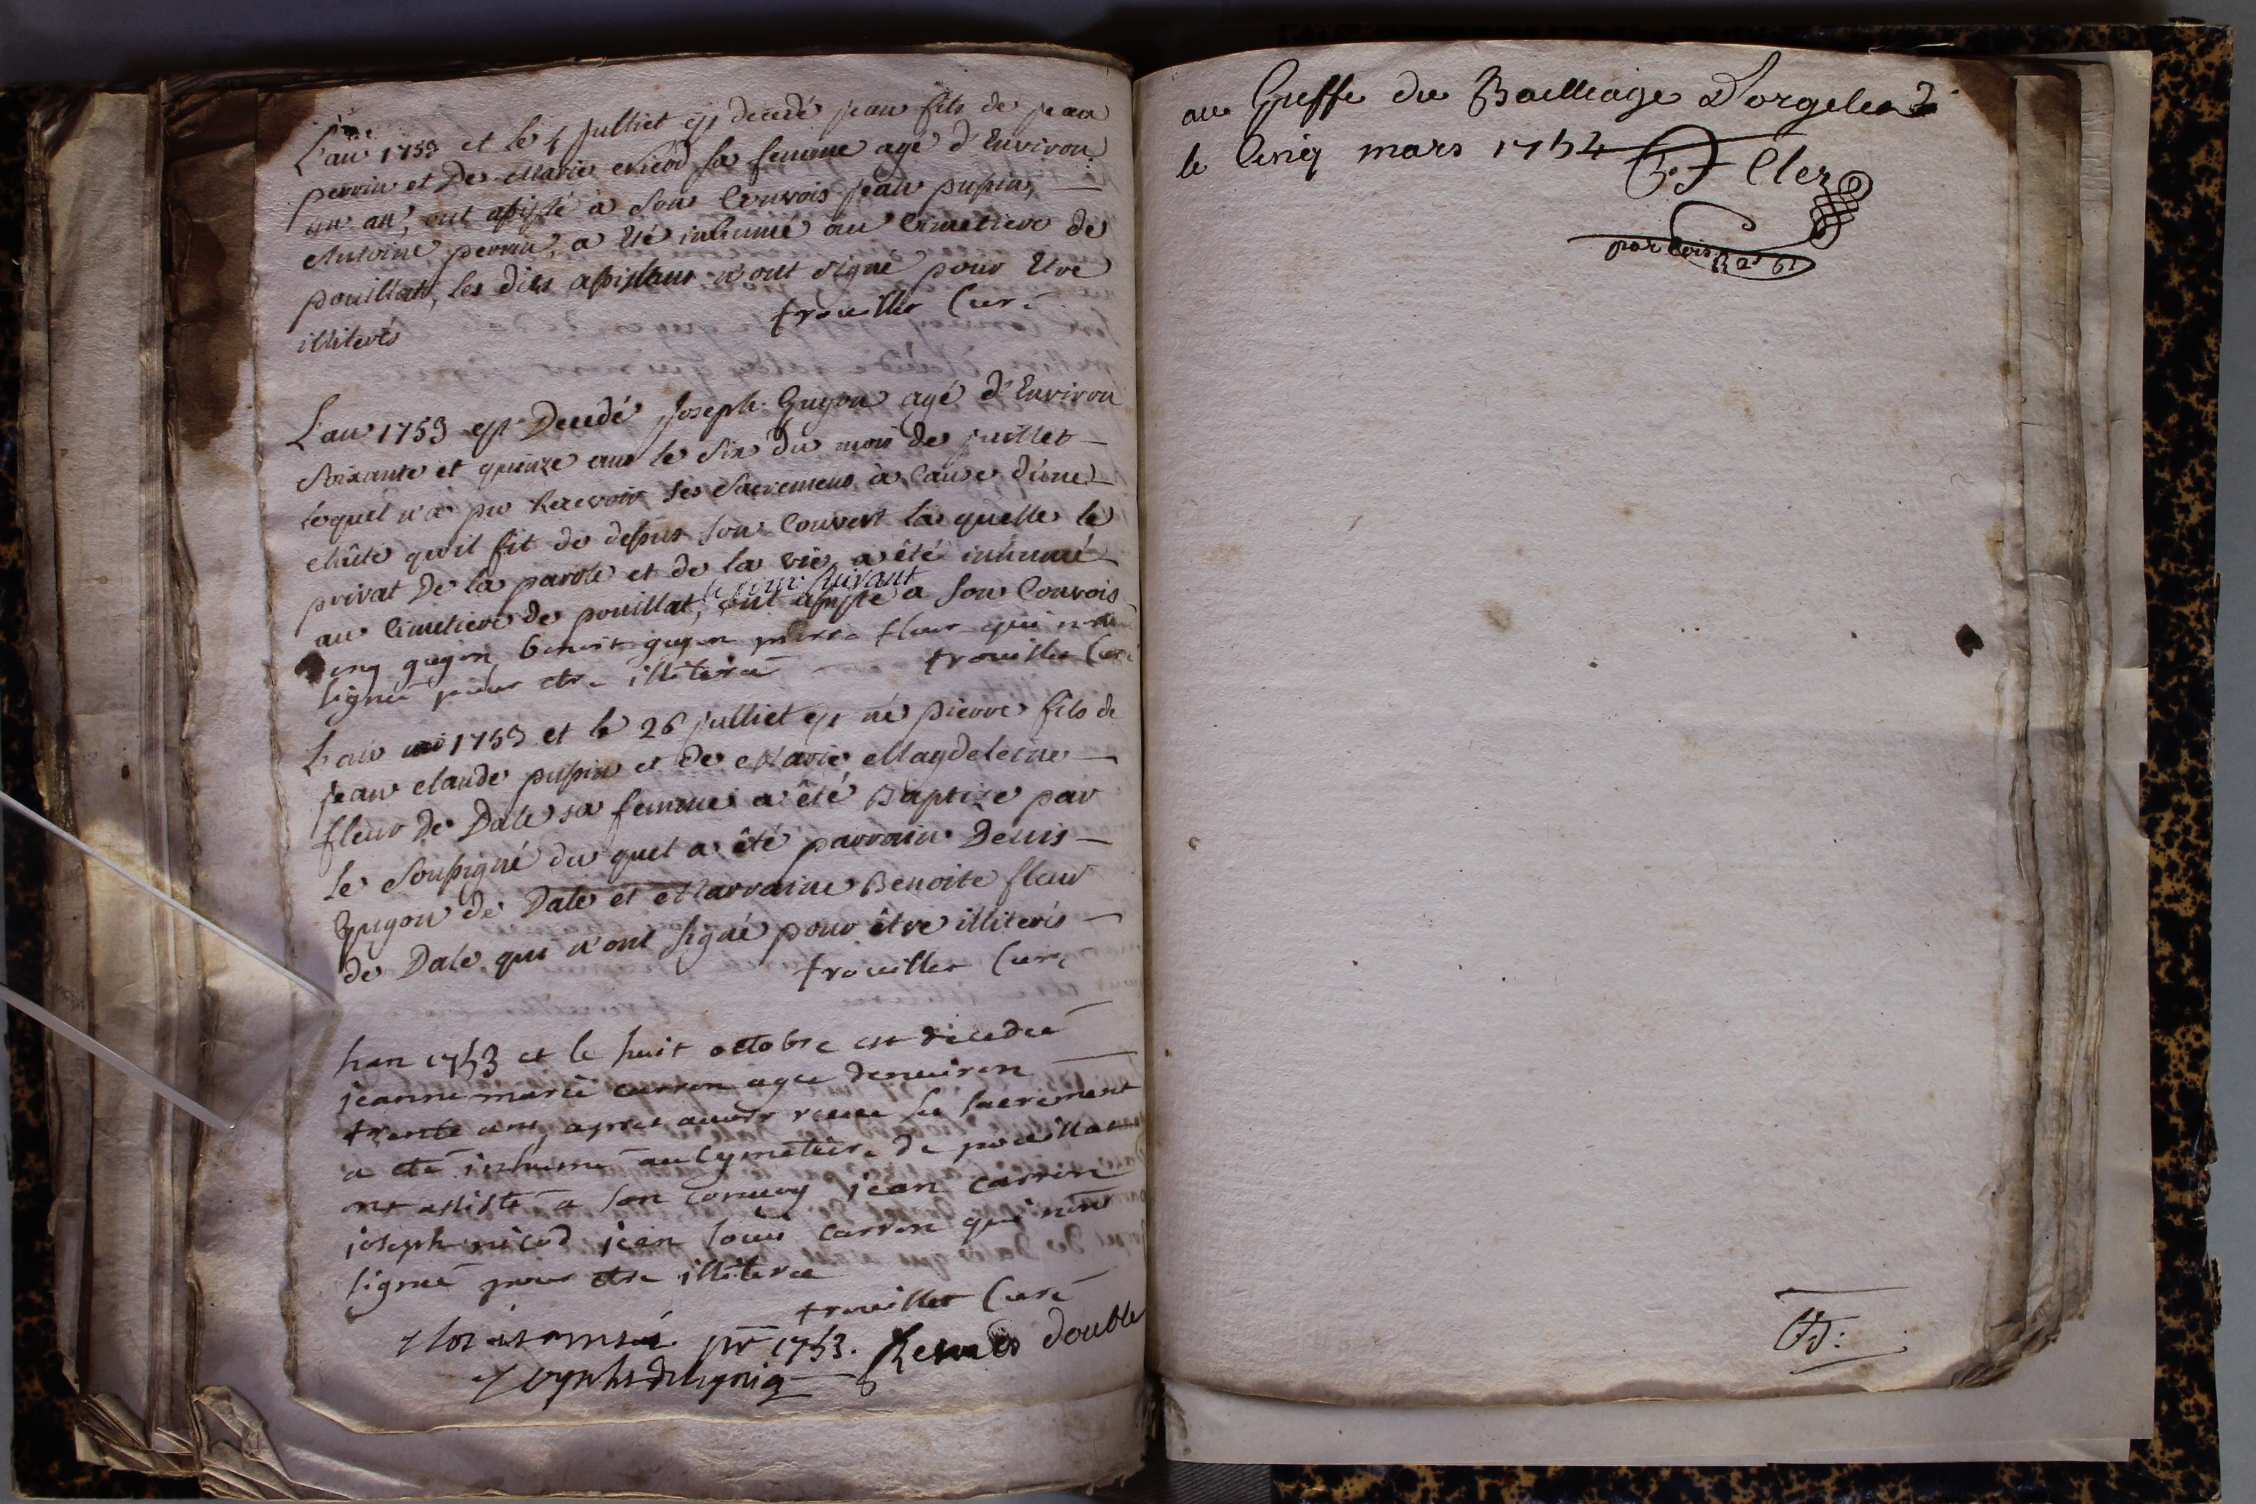 L'an 1753 et le 4 julliet est decedé jean fils de jean
perrin et De Marie Nicod sa femme agé d'Environ
un an, ont assisté à son Convois jean pupin,
Antoine perrin, a été inhumé au Cimetiere de
pouillat, les dits assistans n'ont signé pour Etre
illiterés
trouillet Curé
L'an 1753 est Decedé Joseph Guyon agé d'Environ
soixante et quinze ans le six du mois de juillet
lequel n'a pu Recevoir ses sacremens à Cause d'une
chûte qu'il fit de dessus son Couvert la quelle le
privat De la parole et de la vie a été inhumé
le jour suivant
au Cimetiere de pouillat, ont assisté a son Convois
guyon benoit guyon pierre fleur qui nont
signé pour etre illiteré trouillet Curé
L'an 1753 et le 26 julliet est né pierre fils de
jean claude pupin et De Marie Magdeleine
fleur De Dale sa femme a été Baptizé par
le soussigné du quel a été parrain Denis
guyon de Dale et Marraine Benoite fleur
de Dale qui n'ont signé pour être illiterés
trouillet Curé
Lan 1753 et le huit octobre est decedeé
jeanne marie carron agee denuiron
trente ans, apres auoir receu les sacrement
a été inhumé au Cymetiere de pouillat
ont assisté a son conuoy jean carron
joseph nicod jean louis carron qui nont
signé pour etre illiteré
trouillet Curé
1753. Remis double
au Greffe du Bailliage D'orgelet
le Cinq mars 1754
Cler